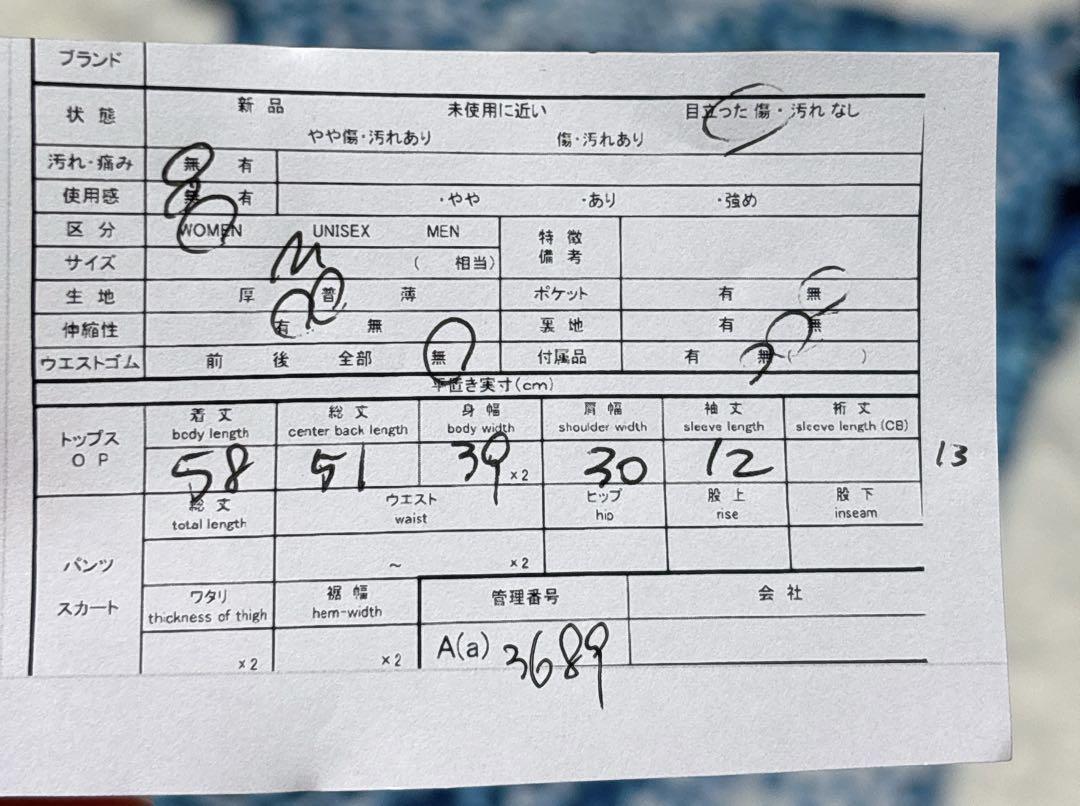 ブランド
状態 新品 未使用に近い 目立った傷・汚れなし
やや傷・汚れあり 傷・汚れあり
汚れ・痛み 無 有
使用感 無 有 ・やや ・あり ・強め
区分 WOMEN UNISEX MEN 特徴
備考
サイズ M ( 相当)
生地 厚 普 薄 ポケット 有 無
伸縮性 有 無 裏地 有 無
ウエストゴム 前 後 全部 無 付属品 有 無 ( )
平置き実寸(cm)
トップス
OP
着丈 総丈 身幅 肩幅 袖丈 裄丈
body length center back length body width shoulder width sleeve length sleeve length (CB)
58 51 39 ×2 30 12 13
総丈 ウエスト ヒップ 股上 股下
total length waist hip rise inseam
パンツ ~ ×2
スカート
ワタリ 裾幅 管理番号 会社
thickness of thigh hem-width
×2 ×2 A(a) 3689